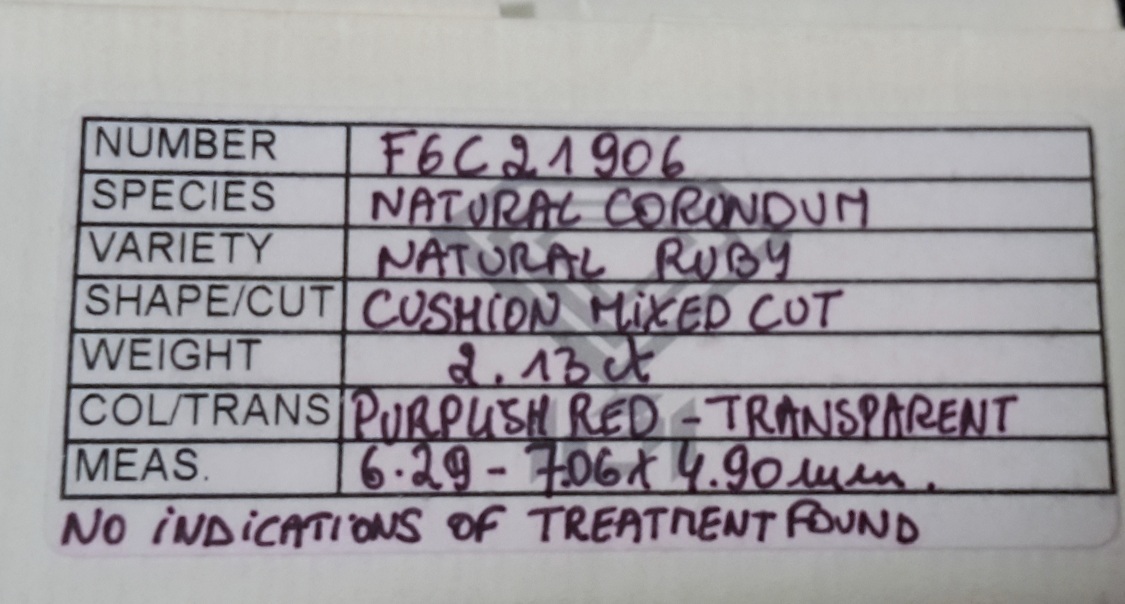 NUMBER F6C21906
SPECIES NATURAL CORUNDUM
VARIETY NATURAL RUBY
SHAPE/CUT CUSHION MIXED CUT
WEIGHT 2.13 ct
COL/TRANS PURPLISH RED - TRANSPARENT
MEAS. 6.29 - 7.06 x 4.90 mm.
NO INDICATIONS OF TREATMENT FOUND